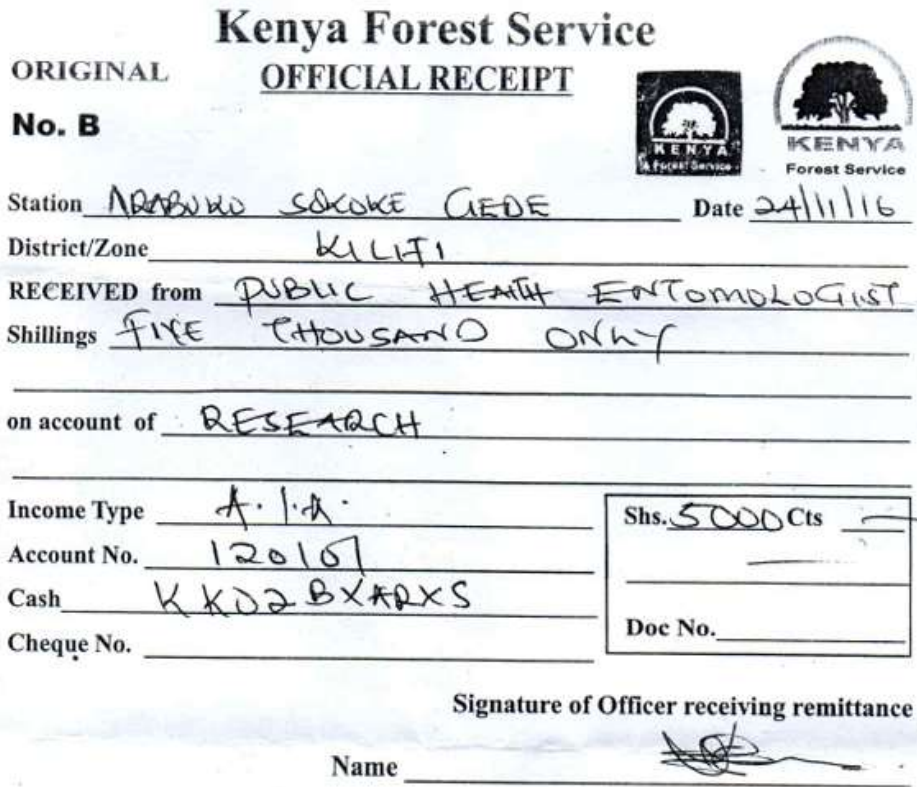 Kenya Forest Service
ORIGINAL OFFICIAL RECEIPT
No. B
KENYA
Forest Service
KENYA
Forest Service
Station ARABUKO SOKOKE GEDE Date 24/11/16
District/Zone KILIFI
RECEIVED from PUBLIC HEALTH ENTOMOLOGIST
Shillings FIVE THOUSAND ONLY
on account of RESEARCH
Income Type A.I.A. Shs. 5000 Cts —
Account No. 120101
Cash KKD2BXARXS
Doc No.
Cheque No.
Signature of Officer receiving remittance
Name